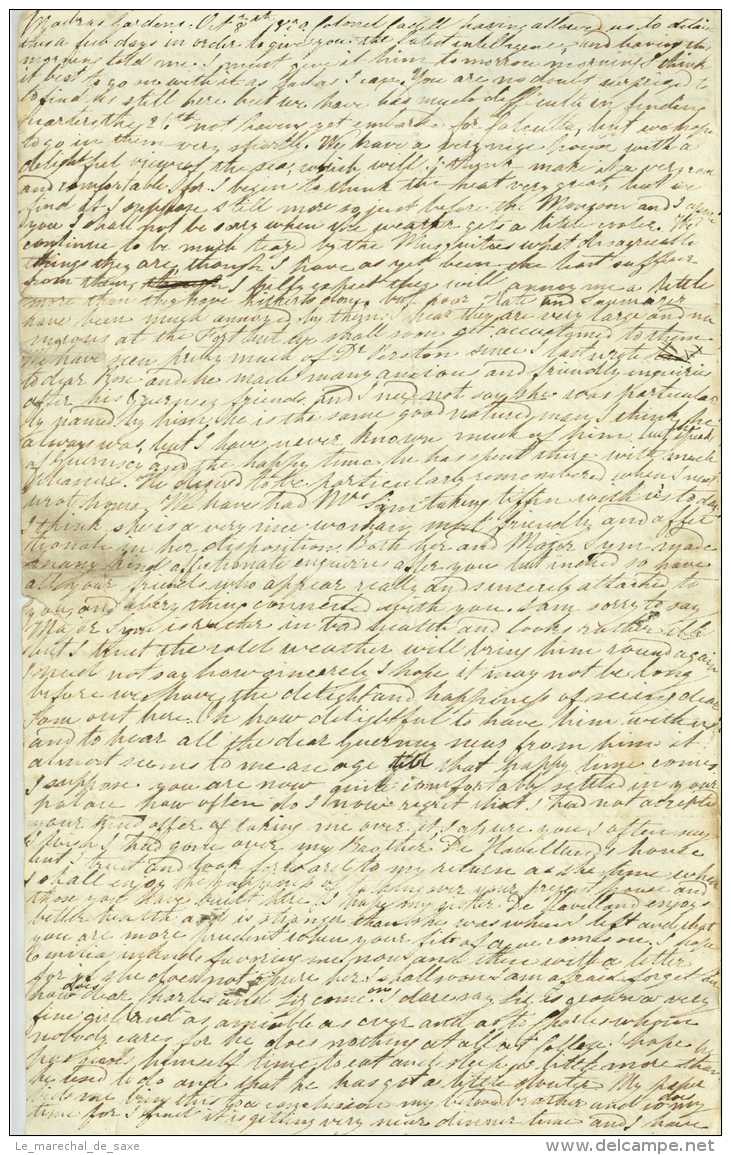 Madras Gardens. Oct Colonel having allowed us to detain
this a few days in order to give you the latest intelligence, and having this
morning told me I must give it him tomorrow morning I think
it best to go on with it as fast as I can. You are no doubt surprised to
find us still here but we have had much difficulty in finding
quarters, the 2 not having yet embarked for Calcutta, but we hope
to go in them very shortly. We have a very nice house with a
delightful view of the sea, which will I think make it a very
and comfortable, for I begin to think the heat very great, but we
find it I suppose still more so just before the Monsoon and I
you I shall not be sorry when the weather gets a little cooler. We
continue to be much teazed by the Musquitoes what disagreeable
things they are, though I have as yet been the least sufferer
from them, I fully expect they will annoy me a little
more than they have hitherto done, but poor Kate and
have been much annoyed by them. I hear they are very large and nu
merous at the Fort but we shall soon get accustomed to them
We have seen pretty much of Dr since I last wrote
to dear Rose and he made many anxious and friendly enquiries
after his Guernsey friends, and I need not say she was particular
ly named by him, he is the same good natured man I think he
always was, but I have never known much of him, but speaks
of Guernsey and the happy time he has spent there with much
pleasure. He desired to be particularly remembered when I next
wrote home. We have had Mrs Sym taking tiffin with us to day
I think she is a very nice woman, most friendly and affec
tionate in her disposition. Both her and Major Sym made
many kind affectionate enquiries after you but indeed so have
all your friends who appear really and sincerely attached to
you, and every thing connected with you. I am sorry to say
Major Sym is rather in bad health and looks rather ill
but I trust the cold weather will bring him round again
I need not say how sincerely I hope it may not be long
before we have the delight and happiness of seeing dear
Tom out here. Oh how delightful to have him with us
and to hear all the dear Guernsey news from him it
almost seems to me an age till that happy time comes
I suppose you are now quite comfortably settled in your
palace how often do I now regret that I had not accepted
your kind offer of taking me over it, I assure you I often say
I wish I had gone over my Brother De Havilland's house
but I trust and look forward to my return as the time when
I shall enjoy the happiness of going over your present house and
those you have built here. I hope my sister De Havilland enjoys
better health and is stronger than she was when I left and that
you are more prudent when your fits of ague come on. I hope
Emilia intends favoring me now and then with a letter
for if she does not I assure her I shall soon I am afraid forget her
how does dear Martha and come on, I dare say she is grown a very
fine girl and as amiable as ever and as to Charles whom
nobody cares for he does nothing at all I hope he
has given himself time to eat and sleep a little more than
he used to do and that he has got a little stouter My paper
bids me bring this to a conclusion my beloved brother and so does my
time for I find it is getting very near dinner time and I have
Le_marechal_de_saxe
delcampe.net